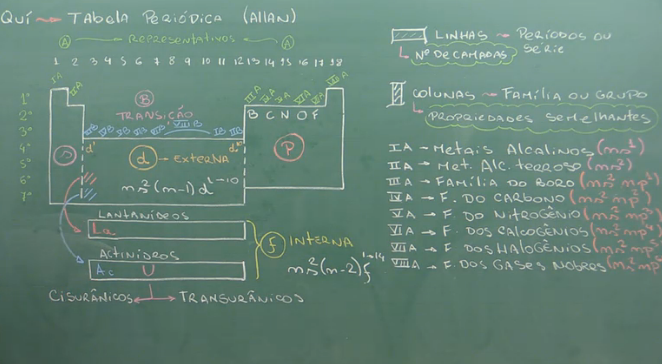 Quí → Tabela Periódica (Allan)
A ← Representativos → A
1 2 3 4 5 6 7 8 9 10 11 12 13 14 15 16 17 18
IA IIA IIIA IVA VA VIA VIIA VIIIA
B
Transição
IIIB IVB VB VIB VIIB VIIIB IB IIB
B C N O F
1º
2º
3º
4º
5º
6º
7º
s
d¹ d¹⁰
d → Externa
ns²(n-1)d¹⁻¹⁰
P
Lantanídeos
La
Actinídeos
Ac U
f Interna
ns²(n-2)f¹⁻¹⁴
Cisurânicos ← → Transurânicos
Linhas → Períodos ou Série
↳ Nº de camadas
Colunas → Família ou Grupo
↳ Propriedades semelhantes
IA → Metais Alcalinos (ns¹)
IIA → Met. Alc. terroso (ns²)
IIIA → Família do Boro (ns² np¹)
IVA → F. do Carbono (ns² np²)
VA → F. do Nitrogênio (ns² np³)
VIA → F. dos Calcogênios (ns² np⁴)
VIIA → F. dos Halogênios (ns² np⁵)
VIIIA → F. dos Gases Nobres (ns² np⁶)